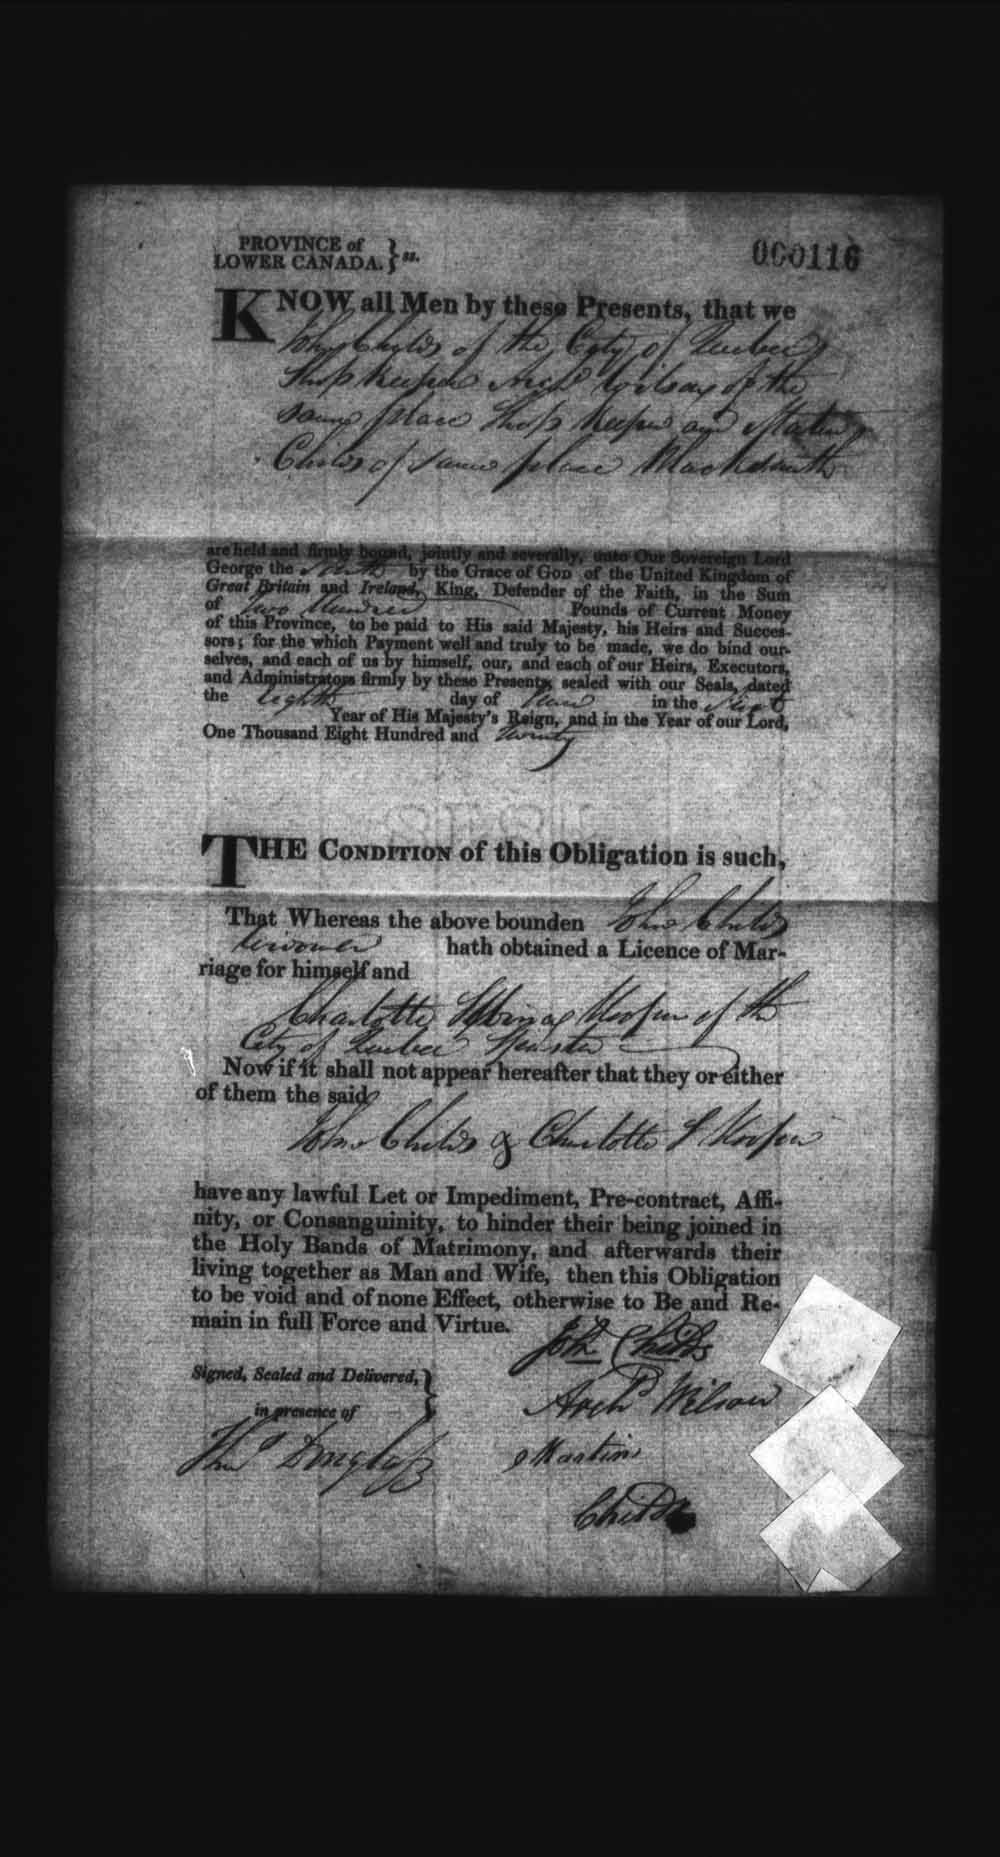 PROVINCE of
LOWER CANADA. } ss.
000116
KNOW all Men by these Presents, that we
John Childs of the City of Quebec
Shop keeper Archd Wilson of the
same place Shop keeper and Martin
Childs of same place Blacksmith
are held and firmly bound, jointly and severally, unto Our Sovereign Lord
George the by the Grace of GOD of the United Kingdom of
Great Britain and Ireland, King, Defender of the Faith, in the Sum
of Two Hundred Pounds of Current Money
of this Province, to be paid to His said Majesty, his Heirs and Succes-
sors; for the which Payment well and truly to be made, we do bind our-
selves, and each of us by himself, our, and each of our Heirs, Executors,
and Administrators firmly by these Presents, sealed with our Seals, dated
the Eighth day of in the first
Year of His Majesty's Reign, and in the Year of our Lord,
One Thousand Eight Hundred and twenty
THE CONDITION of this Obligation is such,
That Whereas the above bounden John Childs
widower hath obtained a Licence of Mar-
riage for himself and
Charlotte of the
City of Quebec Spinster
Now if it shall not appear hereafter that they or either
of them the said
John Childs & Charlotte S
have any lawful Let or Impediment, Pre-contract, Affi-
nity, or Consanguinity, to hinder their being joined in
the Holy Bands of Matrimony, and afterwards their
living together as Man and Wife, then this Obligation
to be void and of none Effect, otherwise to Be and Re-
main in full Force and Virtue.
Joh Childs
Signed, Sealed and Delivered, }
in presence of
Archd Wilson
Thos Douglass
Martin
Childs